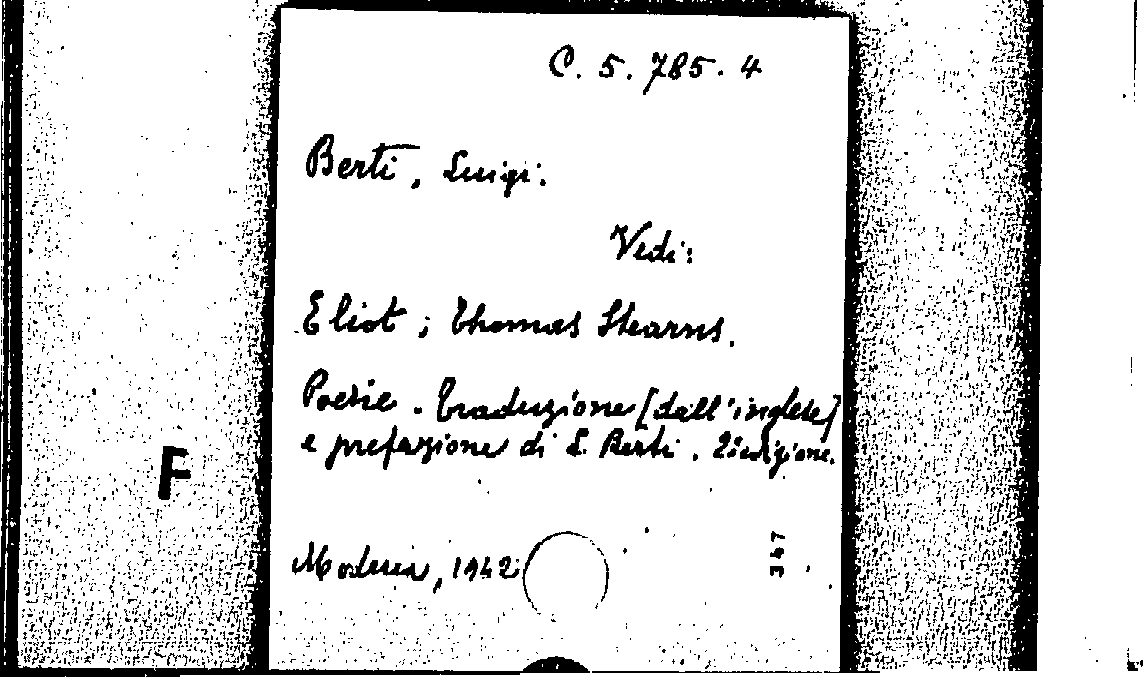 C. 5. 785. 4
Berti, Luigi.
Vedi:
Eliot ; Thomas Stearns.
Poesie. Traduzione [dall'inglese]
e prefazione di L. Berti. 2ª edizione.
F
Modena, 1942
347